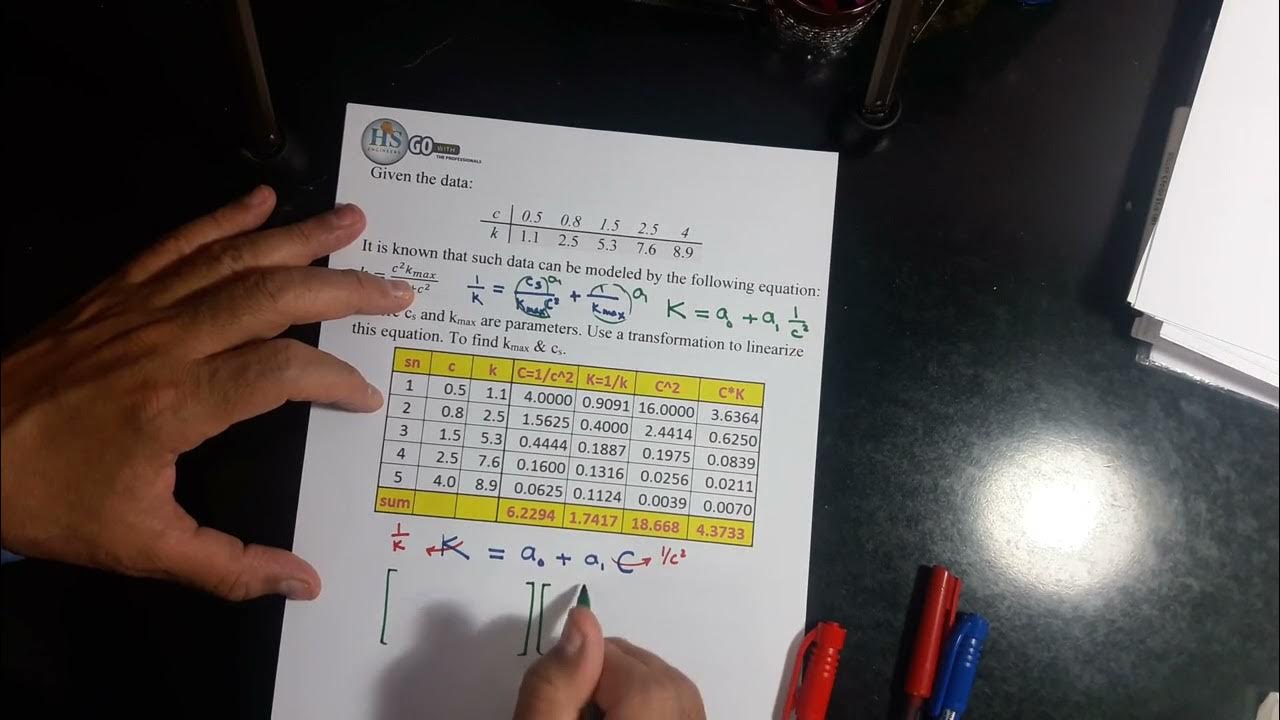 HS
ENGINEERS
GO WITH
THE PROFESSIONALS
Given the data:
c 0.5 0.8 1.5 2.5 4
k 1.1 2.5 5.3 7.6 8.9
It is known that such data can be modeled by the following equation:
c²kmax
+c²
1/K = cs/kmax c² + 1/kmax a₁ a₀
K = a₀ + a₁ 1/c²
cs and kmax are parameters. Use a transformation to linearize
this equation. To find kmax & cs.
sn c k C=1/c^2 K=1/k C^2 C*K
1 0.5 1.1 4.0000 0.9091 16.0000 3.6364
2 0.8 2.5 1.5625 0.4000 2.4414 0.6250
3 1.5 5.3 0.4444 0.1887 0.1975 0.0839
4 2.5 7.6 0.1600 0.1316 0.0256 0.0211
5 4.0 8.9 0.0625 0.1124 0.0039 0.0070
sum 6.2294 1.7417 18.668 4.3733
1/K K = a₀ + a₁ C 1/c²
[ ] [